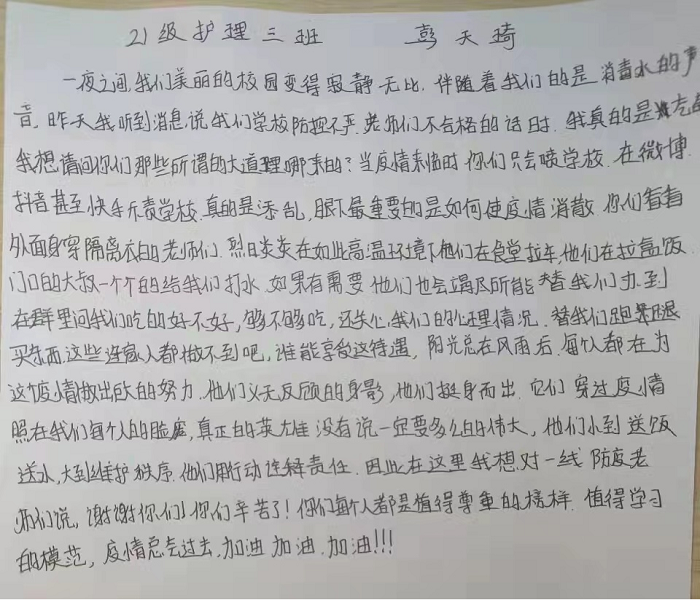 21级护理三班 彭天琦
一夜之间,我们美丽的校园变得寂静无比,伴随着我们的是消毒水的声
音,昨天我听到消息说我们学校防控不严,老师们不合格的话时,我真的是
我想请问你们那些所谓的大道理哪来的?当疫情来临时你们只会喷学校.在微博.
抖音甚至快手斥责学校.真的是添乱,眼下最重要的是如何使疫情消散.你们看看
外面身穿隔离衣的老师们.烈日炎炎在如此高温环境下他们在食堂拉车,他们在拉盒饭.
门口的大叔一个个的给我们打水.如果有需要他们也会竭尽所能替我们办到
在群里问我们吃的好不好,够不够吃,还关心我们的心理情况.替我们跑腿
买东西.这些连家人都做不到吧,谁能享受这待遇,阳光总在风雨后.每个人都在为
这个疫情做出巨大的努力.他们义无反顾的身影,他们挺身而出.它们穿过疫情
照在我们每个人的脸庞,真正的英雄没有说一定要多么的伟大,他们小到送饭
送水,大到维护秩序.他们用行动诠释责任.因此在这里我想对一线防疫老
师们说,谢谢你们!你们辛苦了!你们每个人都是值得尊重的榜样.值得学习
的模范,疫情总会过去,加油.加油.加油!!!